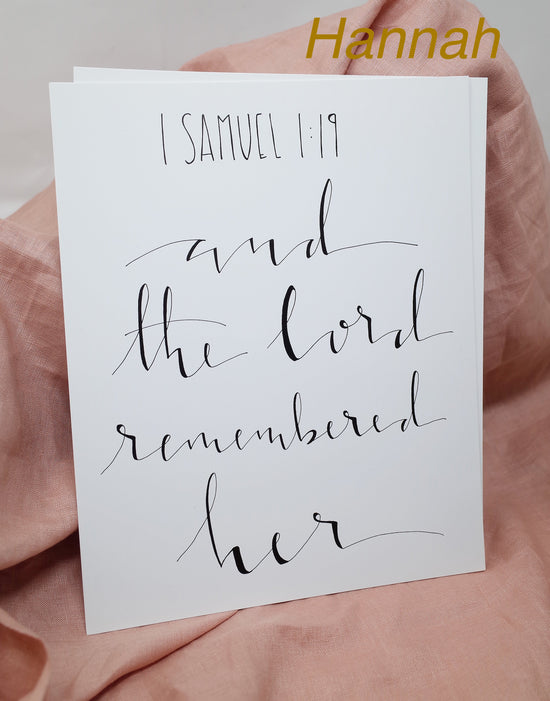 Hannah
1 SAMUEL 1:19
and
the lord
remembered
her